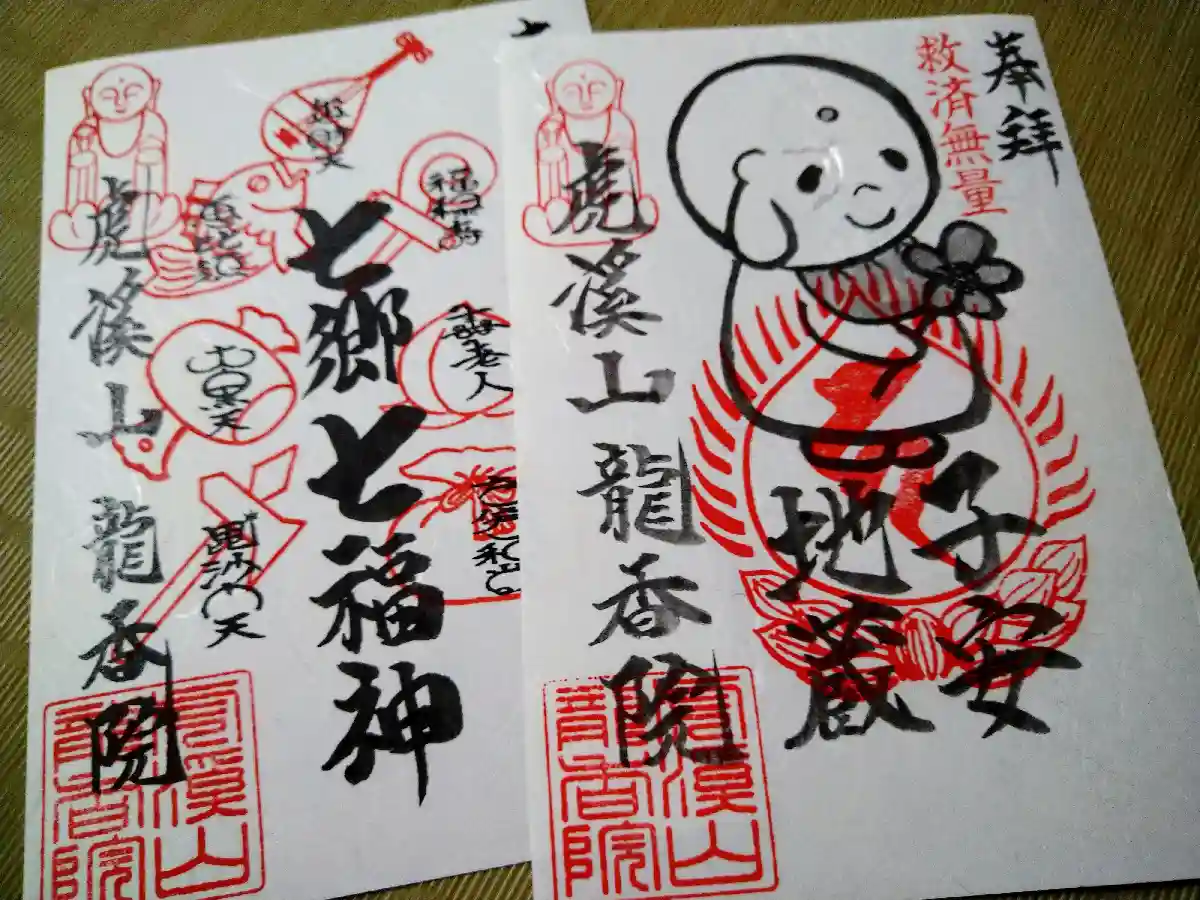 奉拝
救済無量
子安
地蔵
虎溪山 龍香院
虎溪山
龍香院
七郷七福神
福禄寿
寿老人
布袋和尚
弁財天
恵比須
大黒天
毘沙門天
虎溪山 龍香院
虎溪山
龍香院